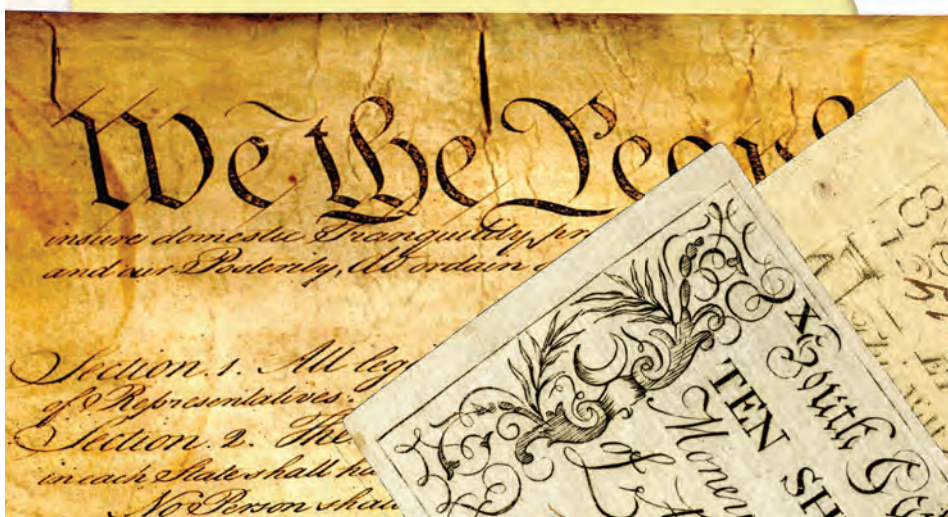 We the Peop
insure domestic Tranquility, pr
and our Posterity, do ordain
Section. 1. All leg
of Representatives.
Section. 2. The
in each State shall ha
No Person shall
X South
TEN SH
Money
of